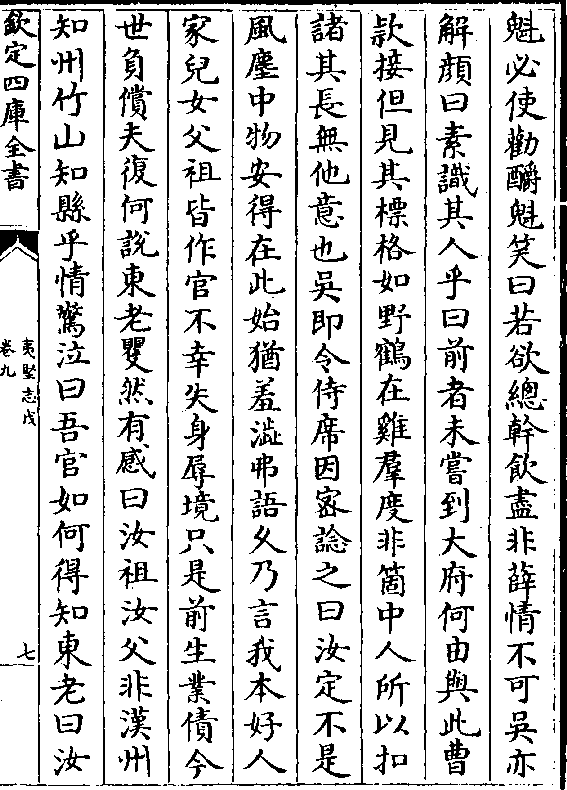 魁必使勸酹魁笑曰若欲總幹飲盡非薛情不可吳亦
解顔曰素識其人乎曰前者未嘗到大府何由與此曹
款接但見其標格如野鶴在雞羣度非箇中人所以扣
諸其長無他意也吳即令侍席因密諗之曰汝定不是
風塵中物安得在此始猶羞澁弗語久乃言我本好人
家兒女父祖皆作官不幸失身辱境只是前生業債今
世負償夫復何說東老矍然有感曰汝祖汝父非漢州
知州竹山知縣乎情驚泣曰吾官如何得知東老曰汝
欽定四庫全書
夷堅志戊
卷九
七